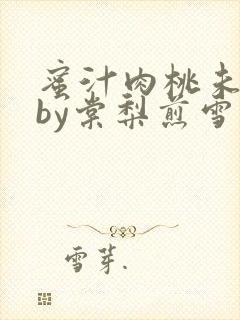 蜜汁肉桃未
by棠梨煎雪
雪芽.